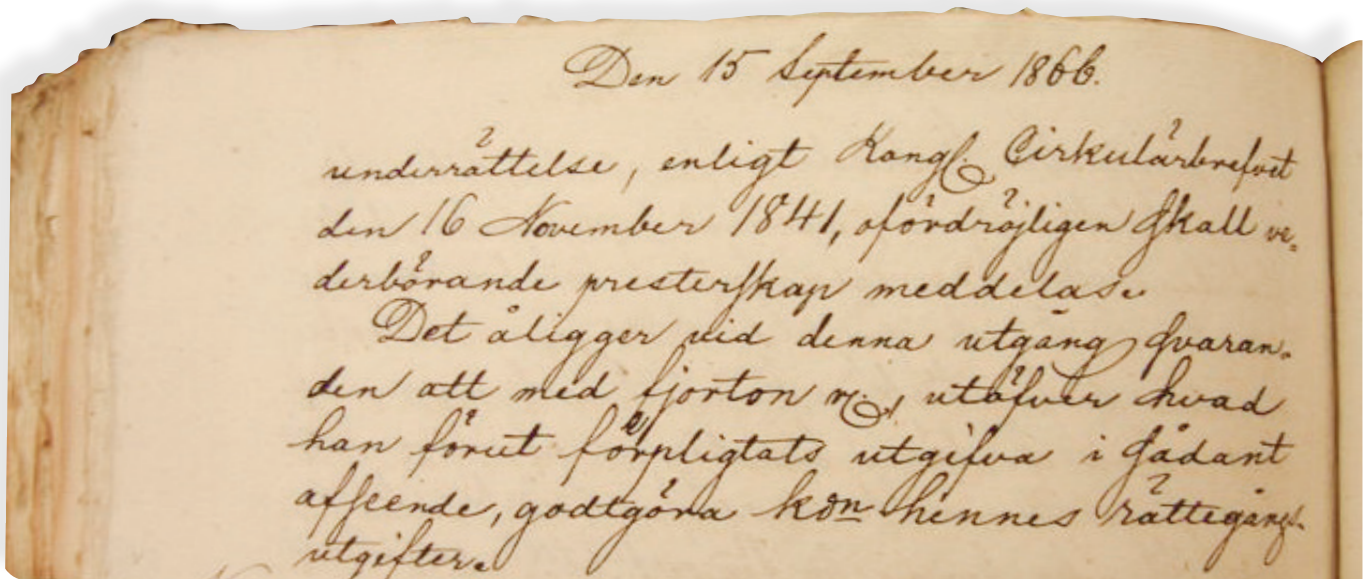 Den 15 September 1866.
underrättelse, enligt Kongl. Cirkulärbrefvet
den 16 November 1841, ofördröjligen skall ve-
derbörande presterskap meddelas.
Det åligger vid denna utgång svaran-
den att med fjorton rd., utöfver hvad
han förut förpligtats utgifva i sådant
afseende, godtgöra kdn hennes rättegångs-
utgifter.